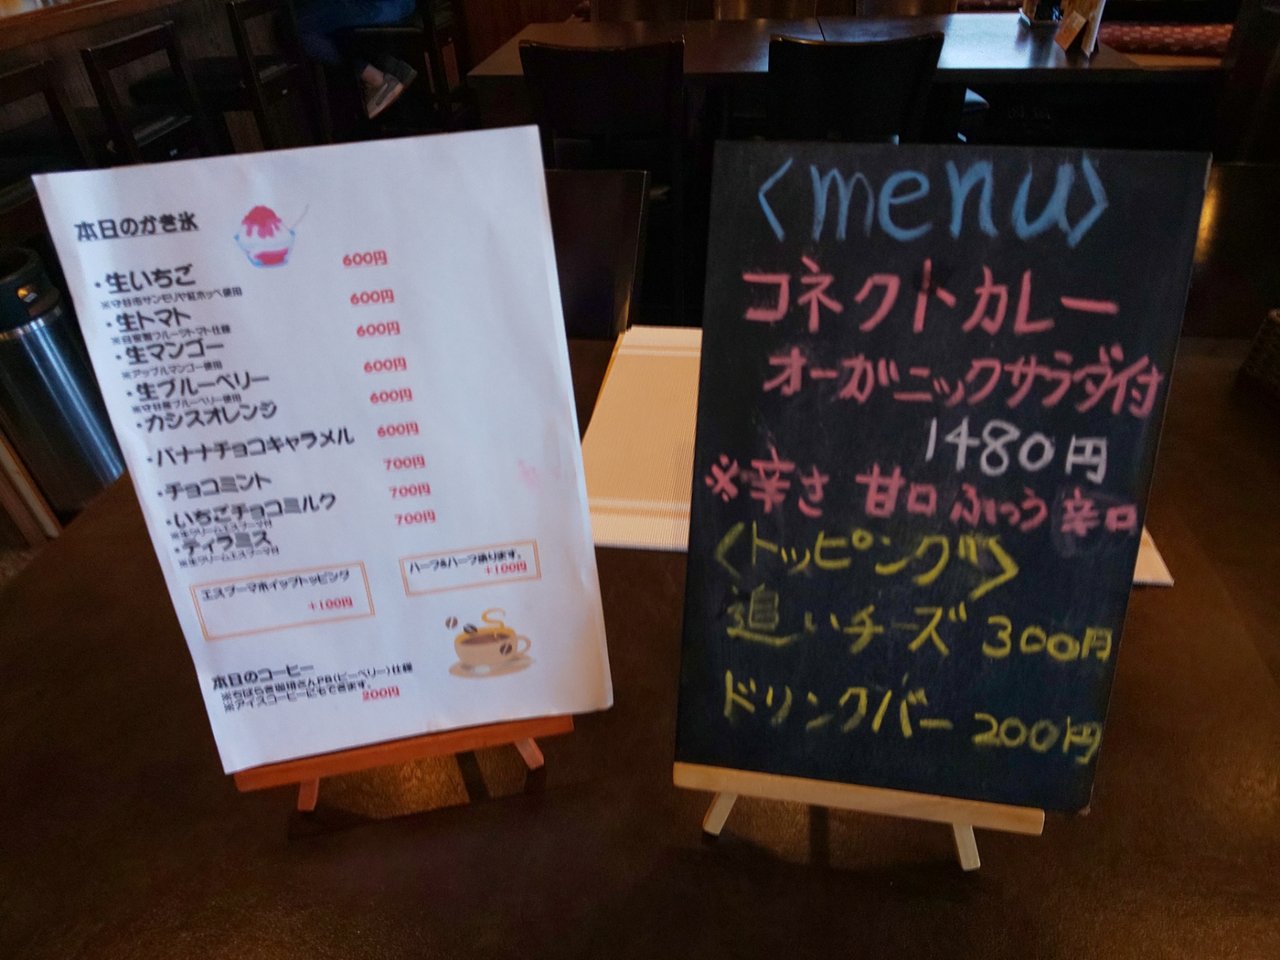 本日のかき氷
・生いちご 600円
※守谷市サンモリヤ紅ホッペ使用
・生トマト 600円
※自家製フルーツトマト仕様
・生マンゴー 600円
※アップルマンゴー使用
・生ブルーベリー 600円
※守谷産ブルーベリー使用
・カシスオレンジ 600円
・バナナチョコキャラメル 600円
・チョコミント 700円
・いちごチョコミルク 700円
※生クリームエスプーマ付
・ティラミス 700円
※生クリームエスプーマ付
エスプーマホイップトッピング
+100円
ハーフ&ハーフ承ります。
+100円
本日のコーヒー
※ちばらき珈琲さんPB(ピーベリー)仕様
※アイスコーヒーにもできます。
200円
<menu>
コネクトカレー
オーガニックサラダ付
1480円
※辛さ 甘口 ふつう 辛口
<トッピング>
追いチーズ 300円
ドリンクバー 200円